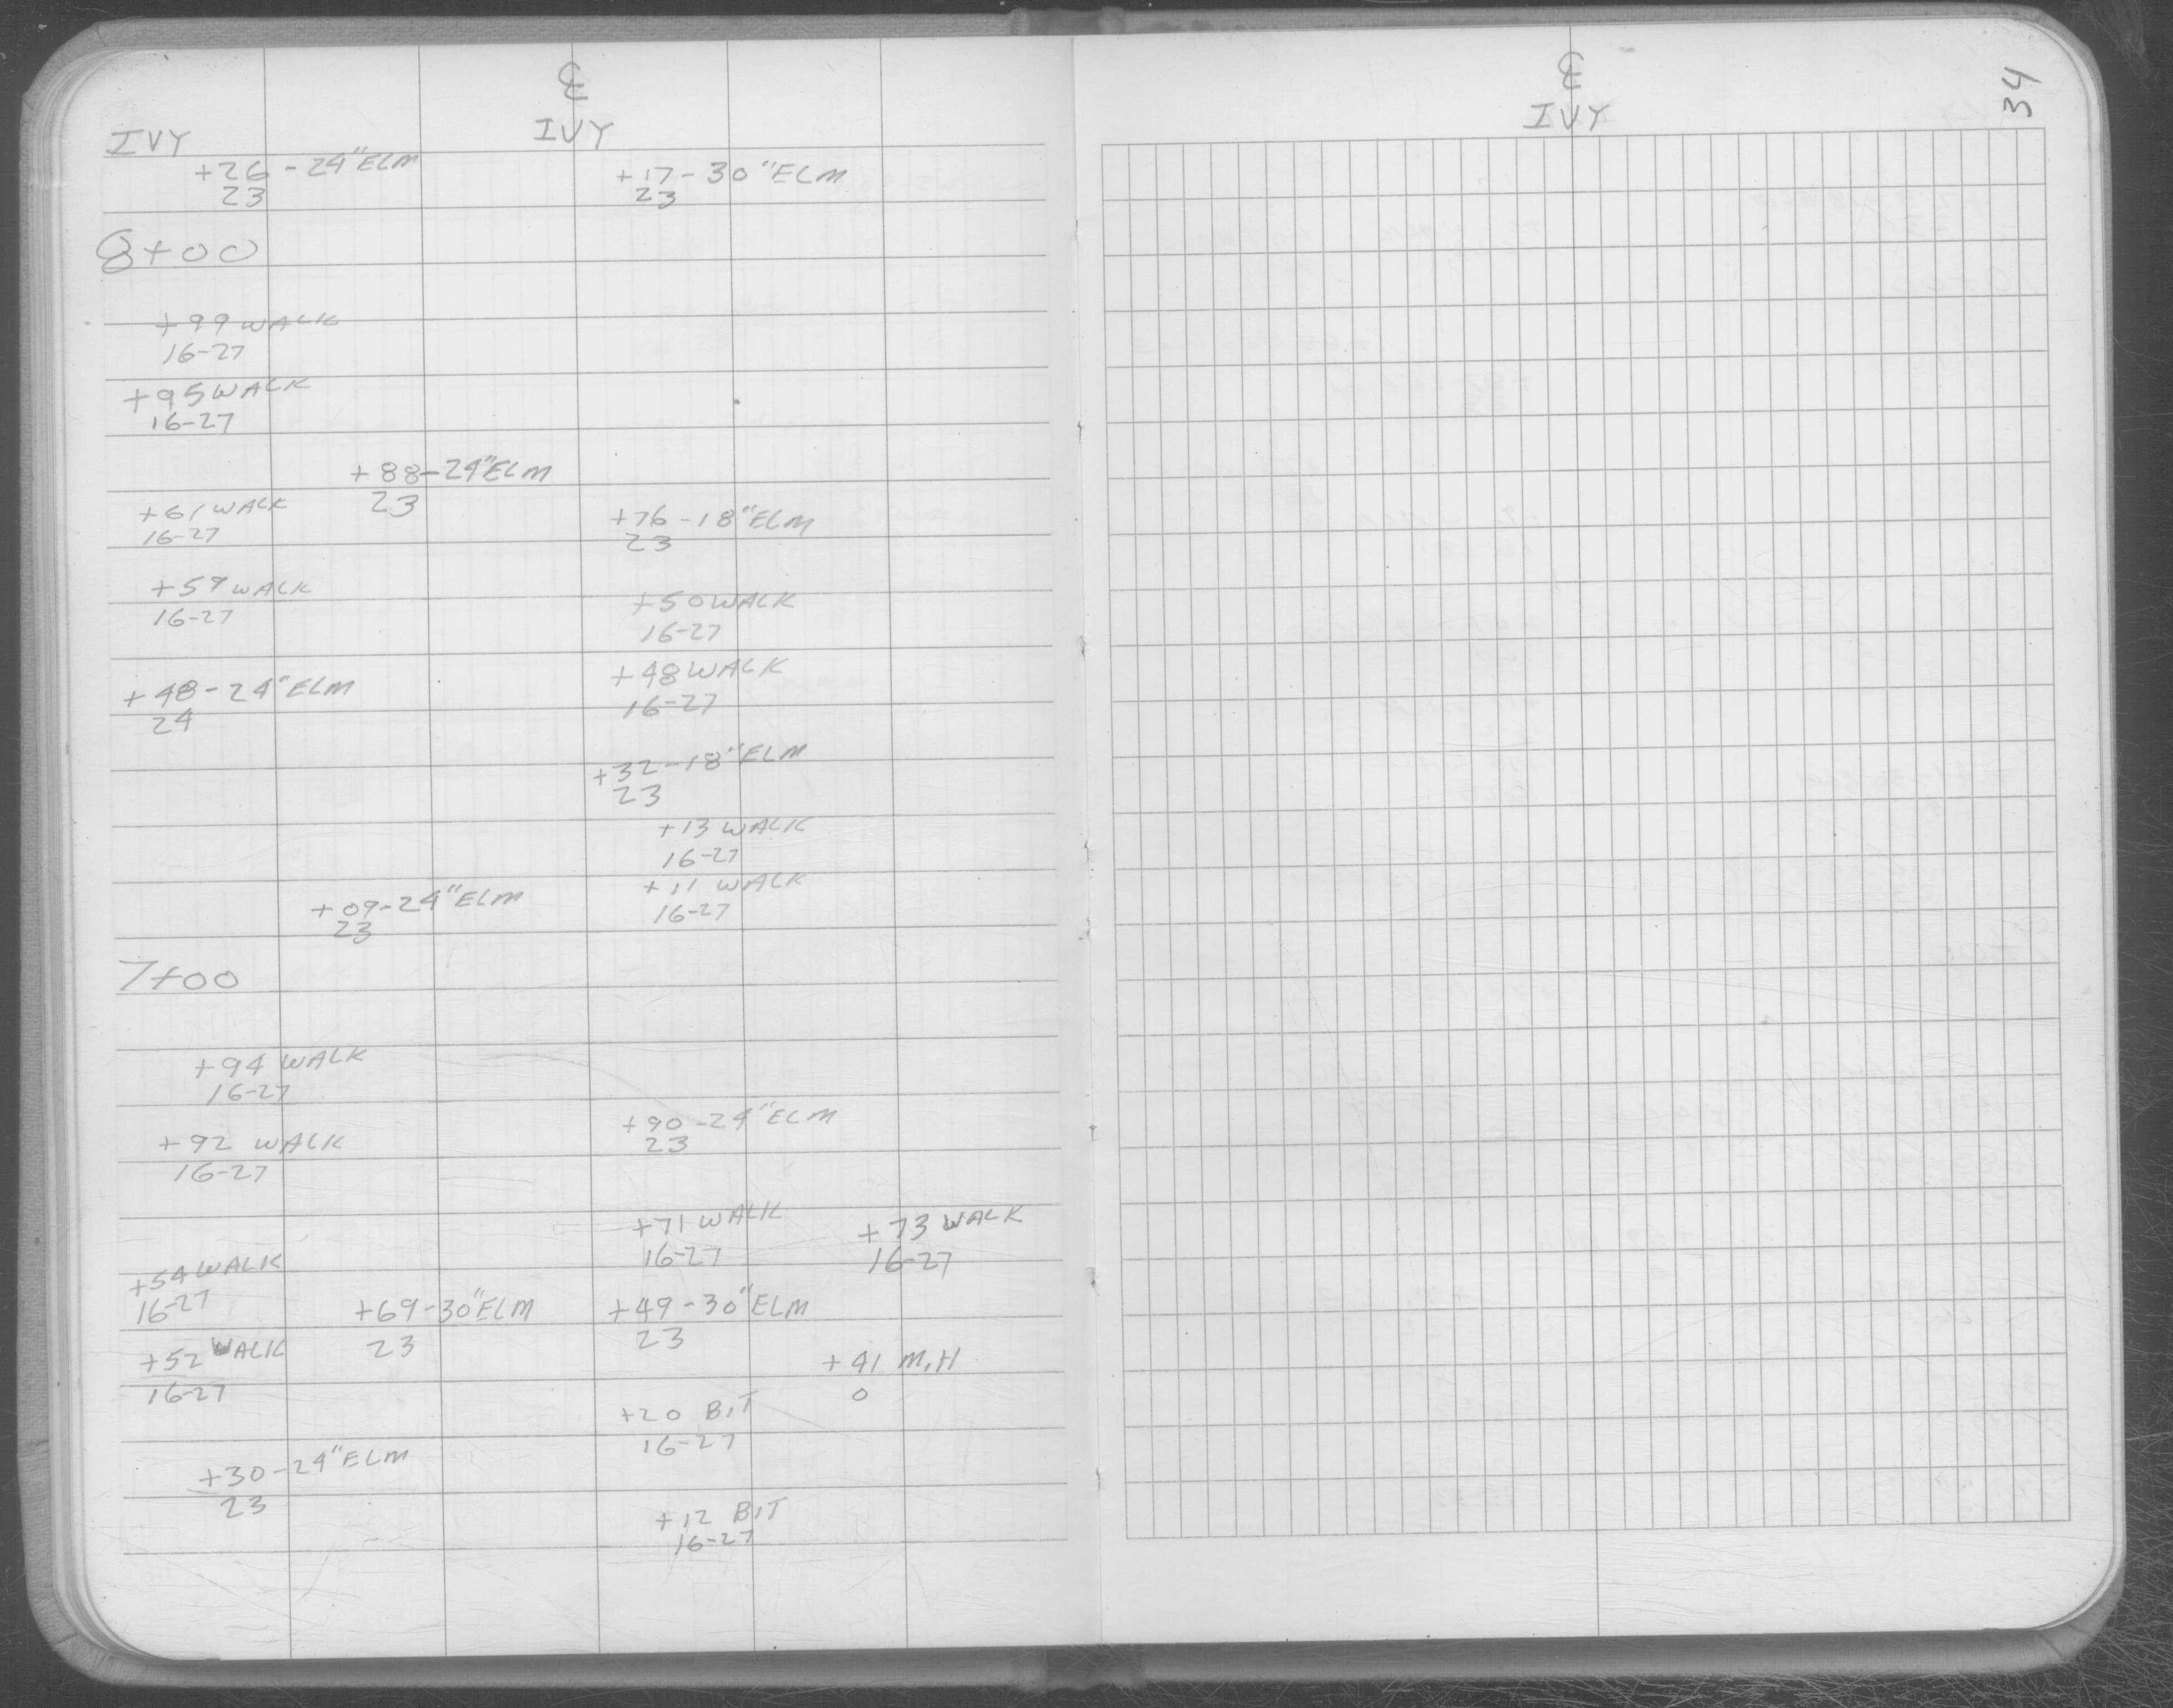 ℄
IVY
IVY
+26-24"ELM
23
+17-30"ELM
23
8+00
+99 WALK
16-27
+95 WALK
16-27
+88-24"ELM
23
+61 WALK
16-27
+76-18"ELM
23
+59 WALK
16-27
+50 WALK
16-27
+48 WALK
16-27
+48-24"ELM
24
+32-18"ELM
23
+13 WALK
16-27
+11 WALK
16-27
+09-24"ELM
23
7+00
+94 WALK
16-27
+90-24"ELM
23
+92 WALK
16-27
+71 WALK
16-27
+73 WALK
16-27
+54 WALK
16-27
+69-30"ELM
23
+49-30"ELM
23
+52 WALK
16-27
+41 M.H
0
+20 BIT
16-27
+30-24"ELM
23
+12 BIT
16-27
℄
IVY
34